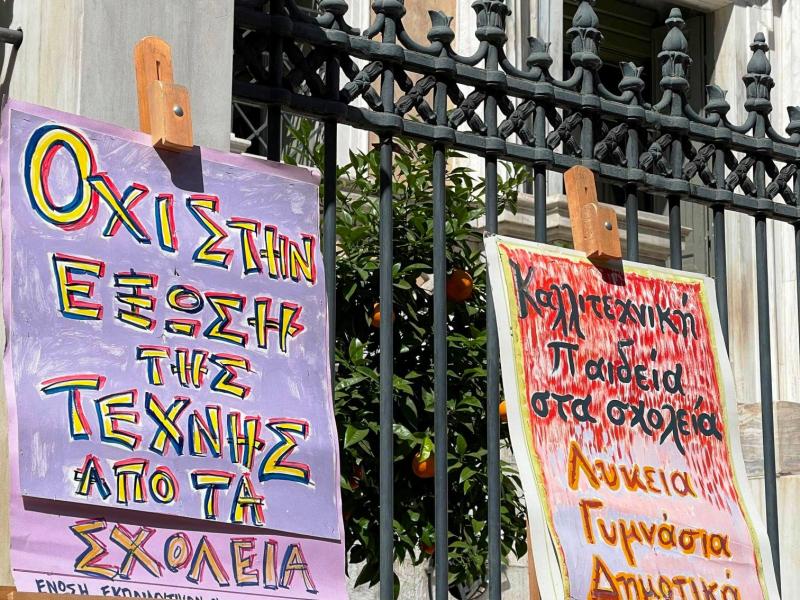 ΟΧΙ ΣΤΗΝ
ΕΞΩΣΗ
ΤΗΣ
ΤΕΧΝΗΣ
ΑΠΟ ΤΑ
ΣΧΟΛΕΙΑ
ΕΝΩΣΗ
Καλλιτεχνική
Παιδεία
στα σχολεία
Λύκεια
Γυμνάσια
Δημοτικά